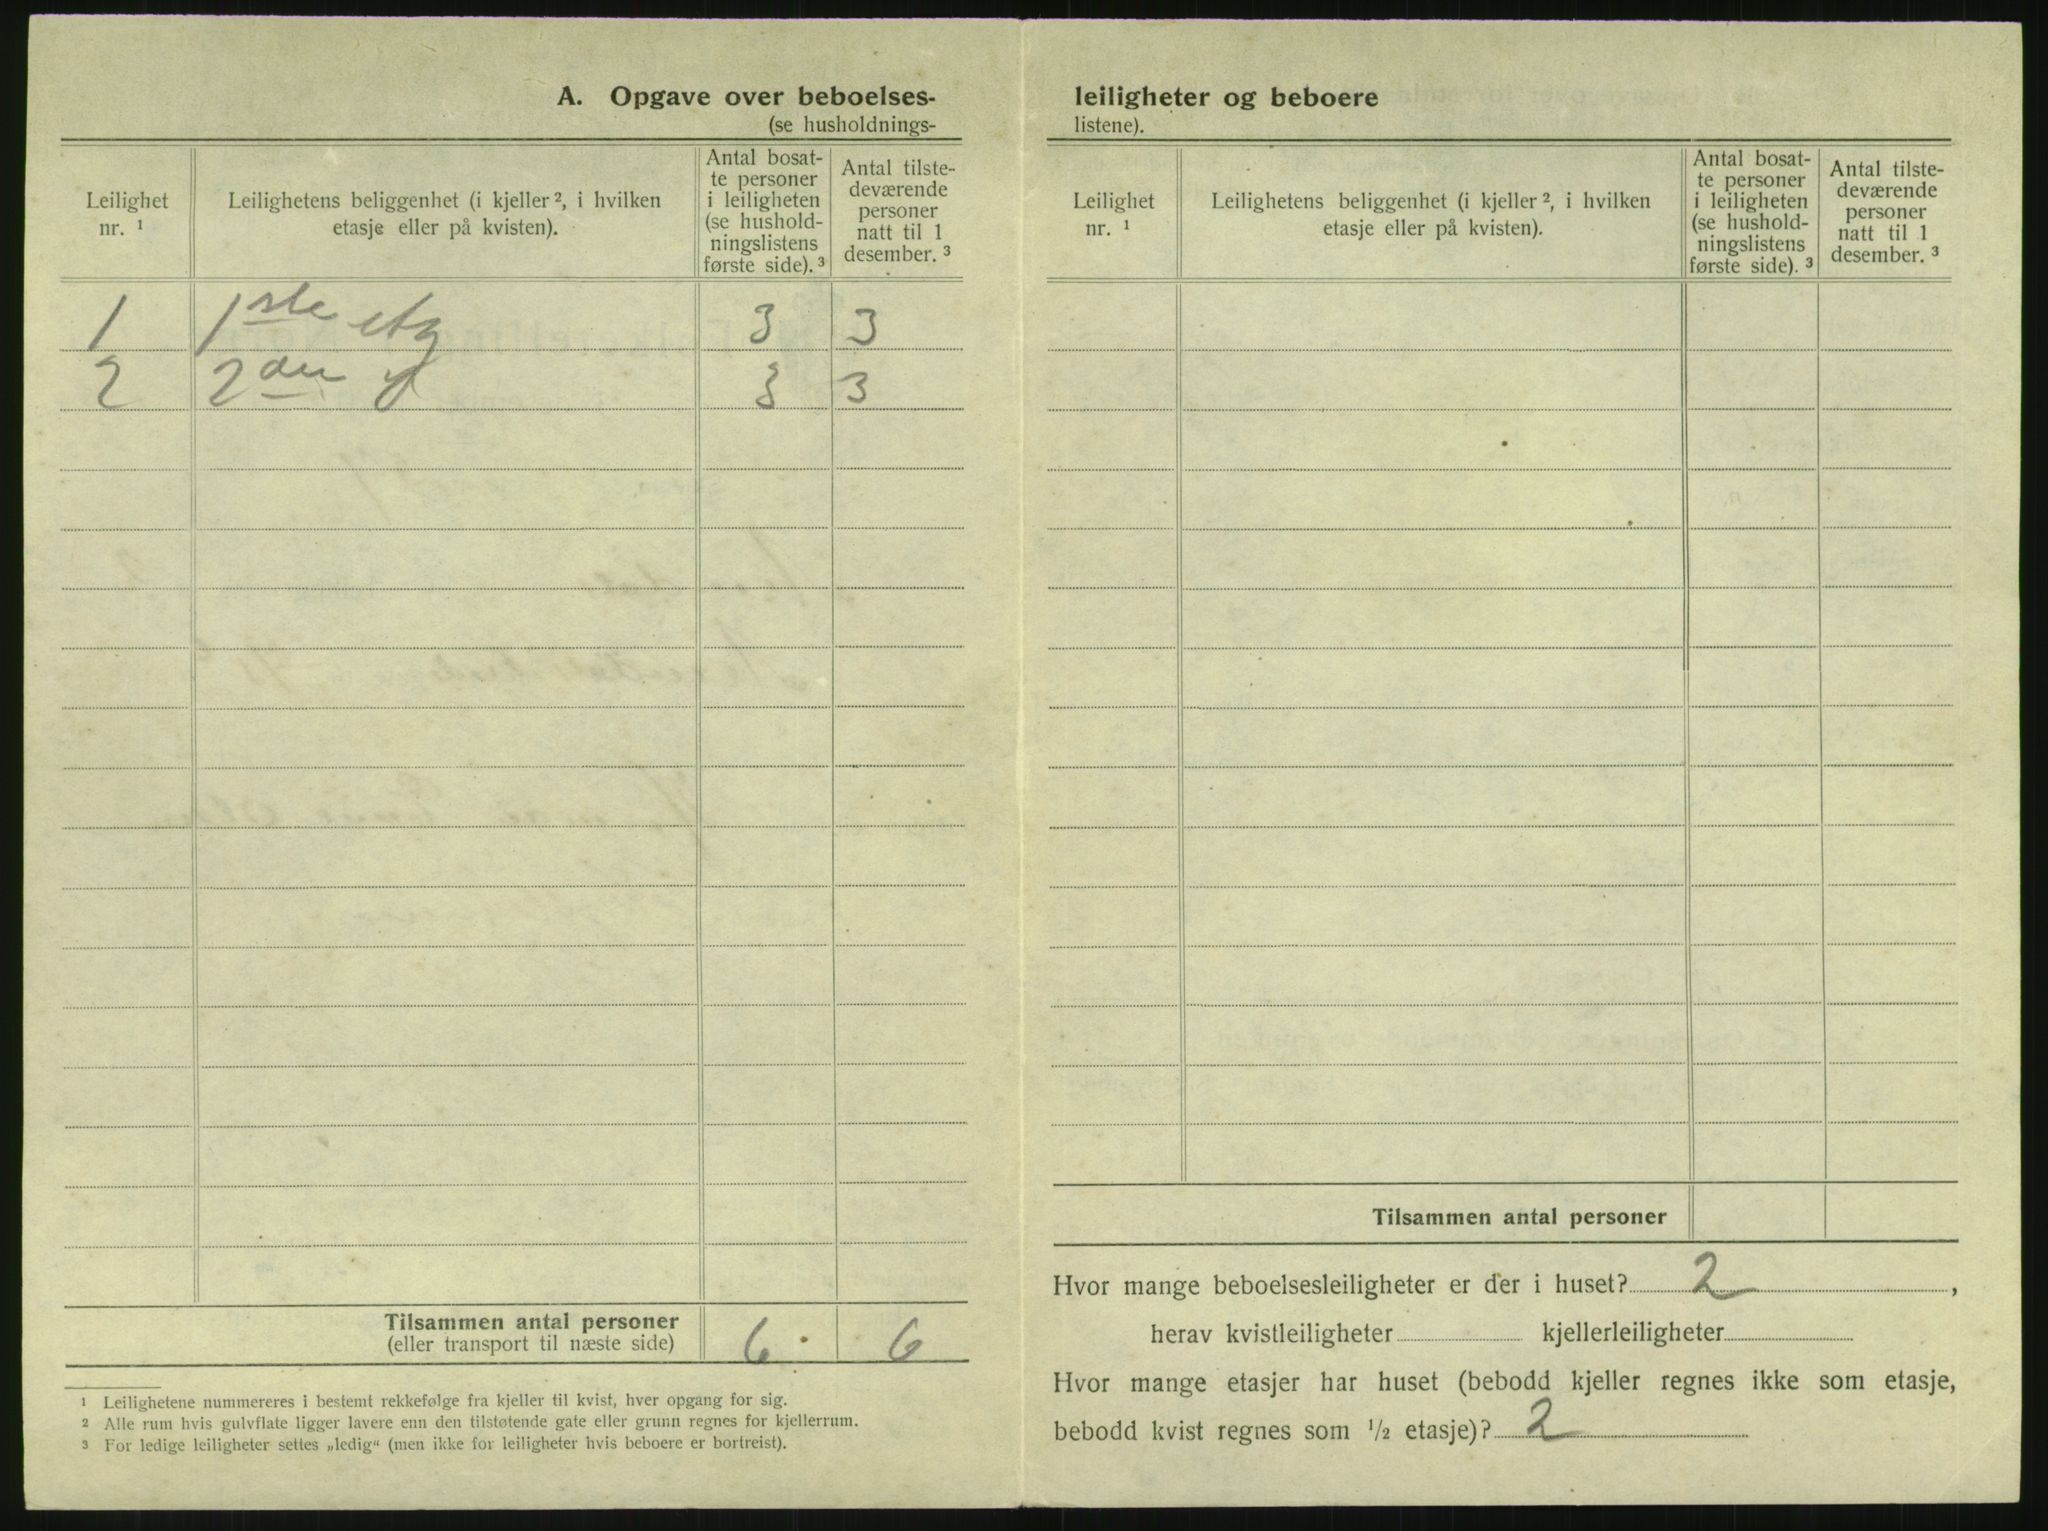 A. Opgave over beboelses-
(se husholdnings-
Leilighet nr. ¹
Leilighetens beliggenhet (i kjeller ², i hvilken etasje eller på kvisten).
Antal bosat-te personer i leiligheten (se hushold-ningslistens første side). ³
Antal tilste-deværende personer natt til 1 desember. ³
1 1ste etg 3 3
2 2den 3 3
Tilsammen antal personer 6 6
(eller transport til næste side)
¹ Leilighetene nummereres i bestemt rekkefølge fra kjeller til kvist, hver opgang for sig.
² Alle rum hvis gulvflate ligger lavere enn den tilstøtende gate eller grunn regnes for kjellerrum.
³ For ledige leiligheter settes „ledig“ (men ikke for leiligheter hvis beboere er bortreist).
leiligheter og beboere
listene).
Leilighet nr. ¹
Leilighetens beliggenhet (i kjeller ², i hvilken etasje eller på kvisten).
Antal bosat-te personer i leiligheten (se hushold-ningslistens første side). ³
Antal tilste-deværende personer natt til 1 desember. ³
Tilsammen antal personer
Hvor mange beboelsesleiligheter er der i huset? 2 ,
herav kvistleiligheter kjellerleiligheter
Hvor mange etasjer har huset (bebodd kjeller regnes ikke som etasje,
bebodd kvist regnes som ½ etasje)? 2